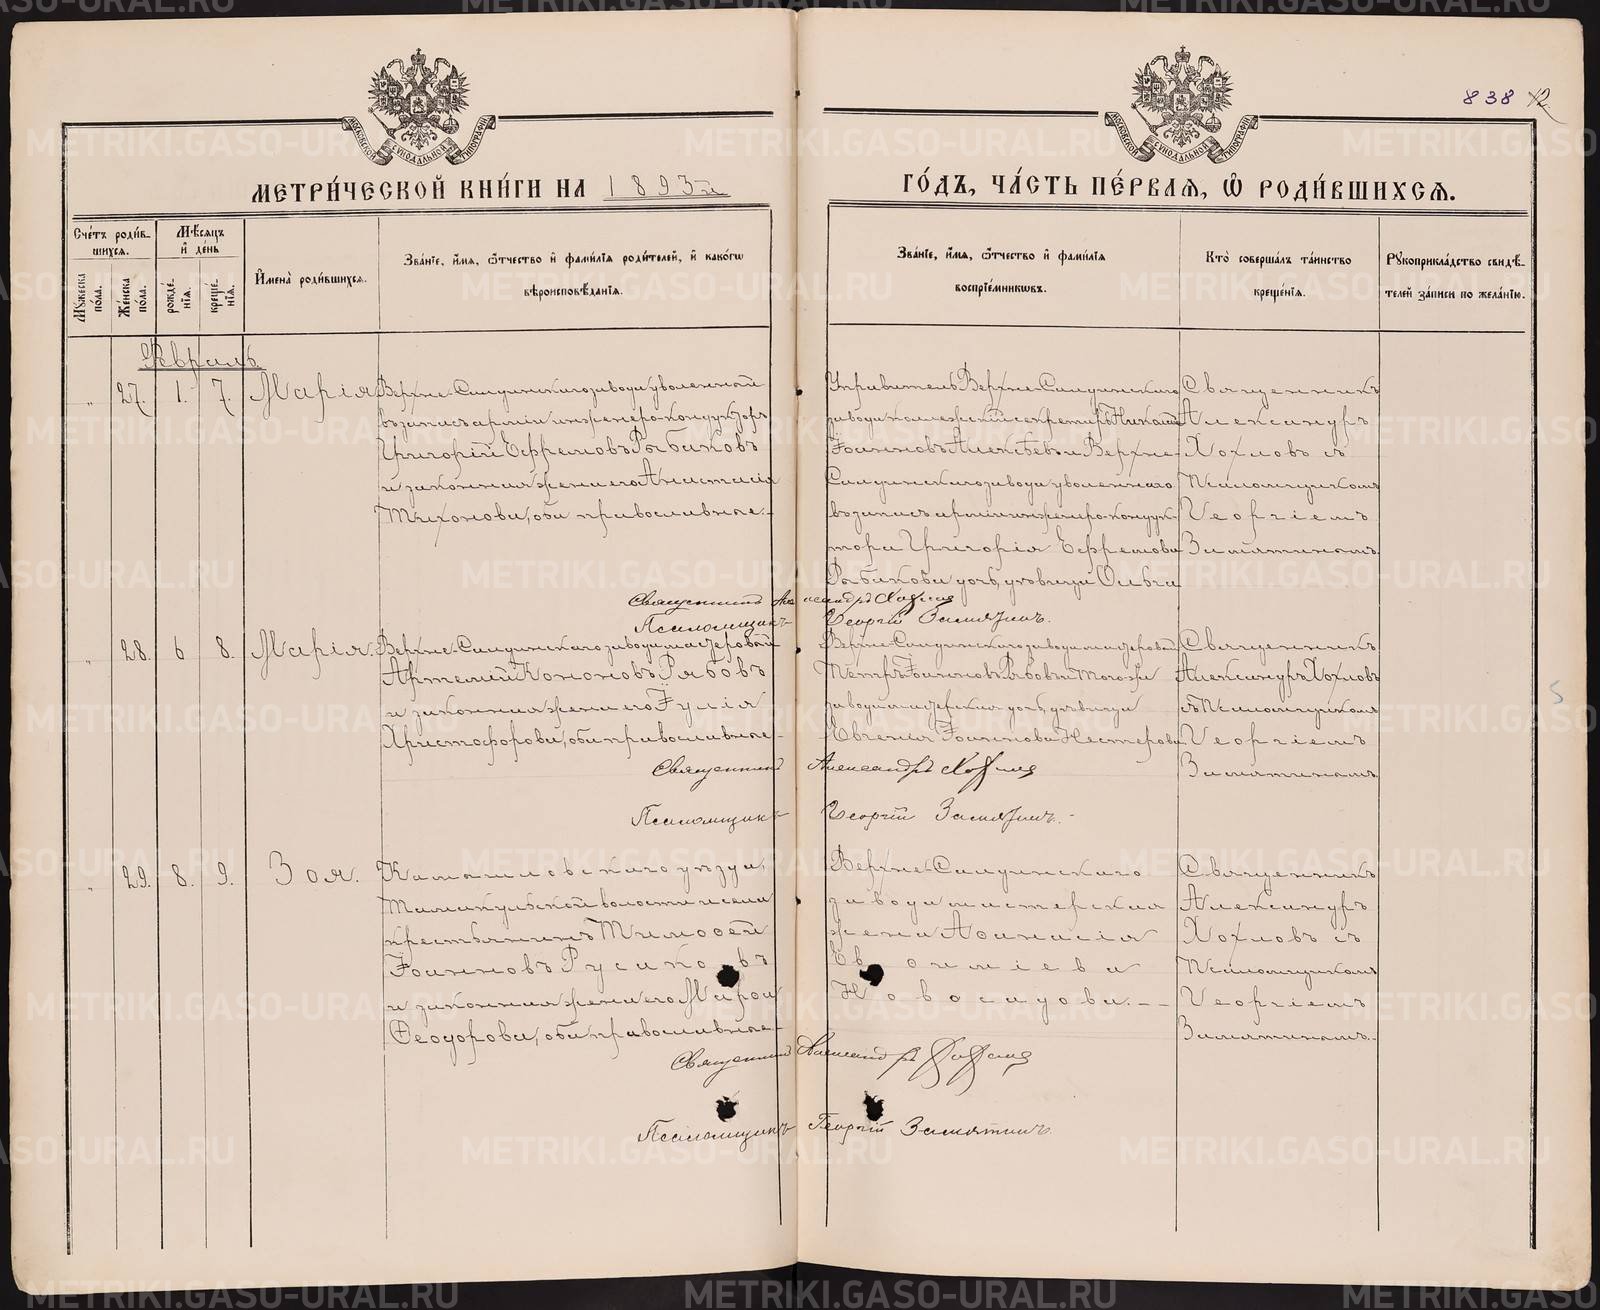 838 12
МОСКОВСКОЙ СУНОДАЛЬНОЙ ТИПОГРАФІИ
МОСКОВСКОЙ СУНОДАЛЬНОЙ ТИПОГРАФІИ
МЕТРИ́ЧЕСКОЙ КНИ́ГИ НА 1893й
ГО́ДЪ, ЧА́СТЬ ПЕ́РВАЯ, Ѡ҆ РОДИ́ВШИХСЯ.
Сче́тъ роди́в-
шихся.
Му́жеска по́ла.
Же́нска по́ла.
Мѣ́сяцъ
и҆ де́нь
рожде́-
нїя.
креще́-
нїя.
И҆мена̀ роди́вшихся.
Зва́нїе, и҆́мя, ѻ҆́тчество и҆ фами́лїя роди́телей, и҆ како́гѡ
вѣроисповѣ́данїя.
Зва́нїе, и҆́мя, ѻ҆́тчество и҆ фами́лїя
воспрїе́мникѡвъ.
Кто̀ соверша́лъ та́инство
креще́нїя.
Рꙋкоприкла́дство свидѣ́-
телей за́писи по жела́нїю.
Февраль
" 27. 1. 7. Марія
Верхне-Салдинскаго завода уволенный
въ запасъ арміи инженеръ-кондукторъ
Григорій Ефремовъ Рыбаковъ
и законная жена его Анастасія
Тихонова, оба православные.
Управитель Верхне-Салдинскаго
завода коллежскій секретарь Николай
Іоанновъ Алексѣевъ и Верхне-
Салдинскаго завода уволеннаго
въ запасъ арміи инженеро-кондук-
тора Григорія Ефремова
Рыбакова дочь, дѣвица Ольга
Священникъ
Александръ
Хохловъ съ
Псаломщикомъ
Георгіемъ
Замятинымъ.
Священникъ Александръ Хохловъ
Псаломщикъ Георгій Замятинъ.
" 28. 6 8. Марія.
Верхне-Салдинскаго завода мастеровой
Артемій Кононовъ Рябовъ
и законная жена его Іулія
Христофорова, оба православные.
Верхне-Салдинскаго завода мастеровой
Петръ Іоанновъ Рябовъ и того же
завода мастерская дочь, дѣвица
Евгенія Іоаннова Нестерова
Священникъ
Александръ Хохловъ
съ Псаломщикомъ
Георгіемъ
Замятинымъ
Священникъ Александръ Хохловъ
Псаломщикъ Георгій Замятинъ.
" 29. 8. 9. Зоя.
Камышловскаго уѣзда,
Тамакульской волости и села
крестьянинъ Тимоѳей
Іоанновъ Русаковъ
и законная жена его Марѳа
Ѳеодорова, оба православные.
Верхне-Салдинскаго
завода мастерская
жена Аѳанасія
Евѳиміева
Новоселова.
Священникъ
Александръ
Хохловъ съ
Псаломщикомъ
Георгіемъ
Замятинымъ.
Священникъ Александръ Хохловъ
Псаломщикъ Георгій Замятинъ.
METRIKI.GASO-URAL.RU